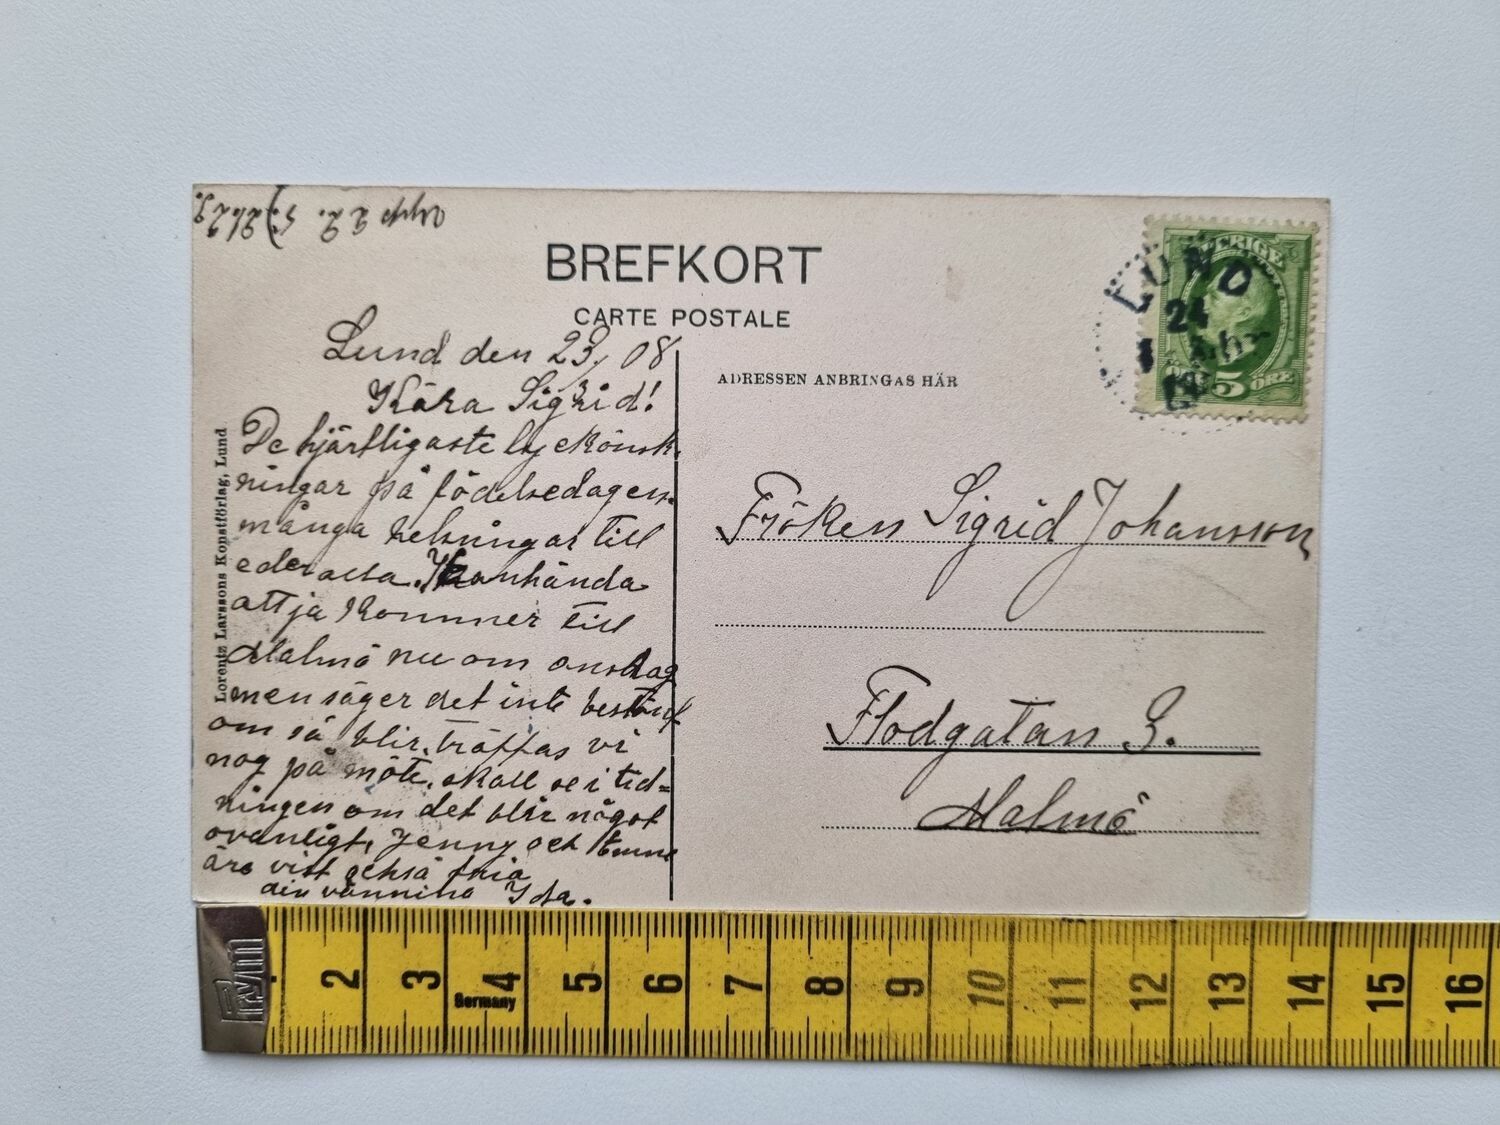 BREFKORT
CARTE POSTALE
ADRESSEN ANBRINGAS HÄR
Lorentz Larssons Konstförlag, Lund
SVERIGE
5 ÖRE
LUND
24
Lund den 23/ 08
Kära Sigrid!
De hjärtligaste lyckönsk
ningar på födelsedagen.
många helsningar till
eder alla. Kanhända
att ja kommer till
Malmö nu om onsdag
men säger det inte bestämt
om så blir, träffas vi
nog på möte, skall se i tid=
ningen om det blir något
ovanligt, Jenny och
äro vist också
din vännina Ida.
Fröken Sigrid Johansson
Flodgatan 3.
Malmö
Prym
Germany
2 3 4 5 6 7 8 9 10 11 12 13 14 15 16